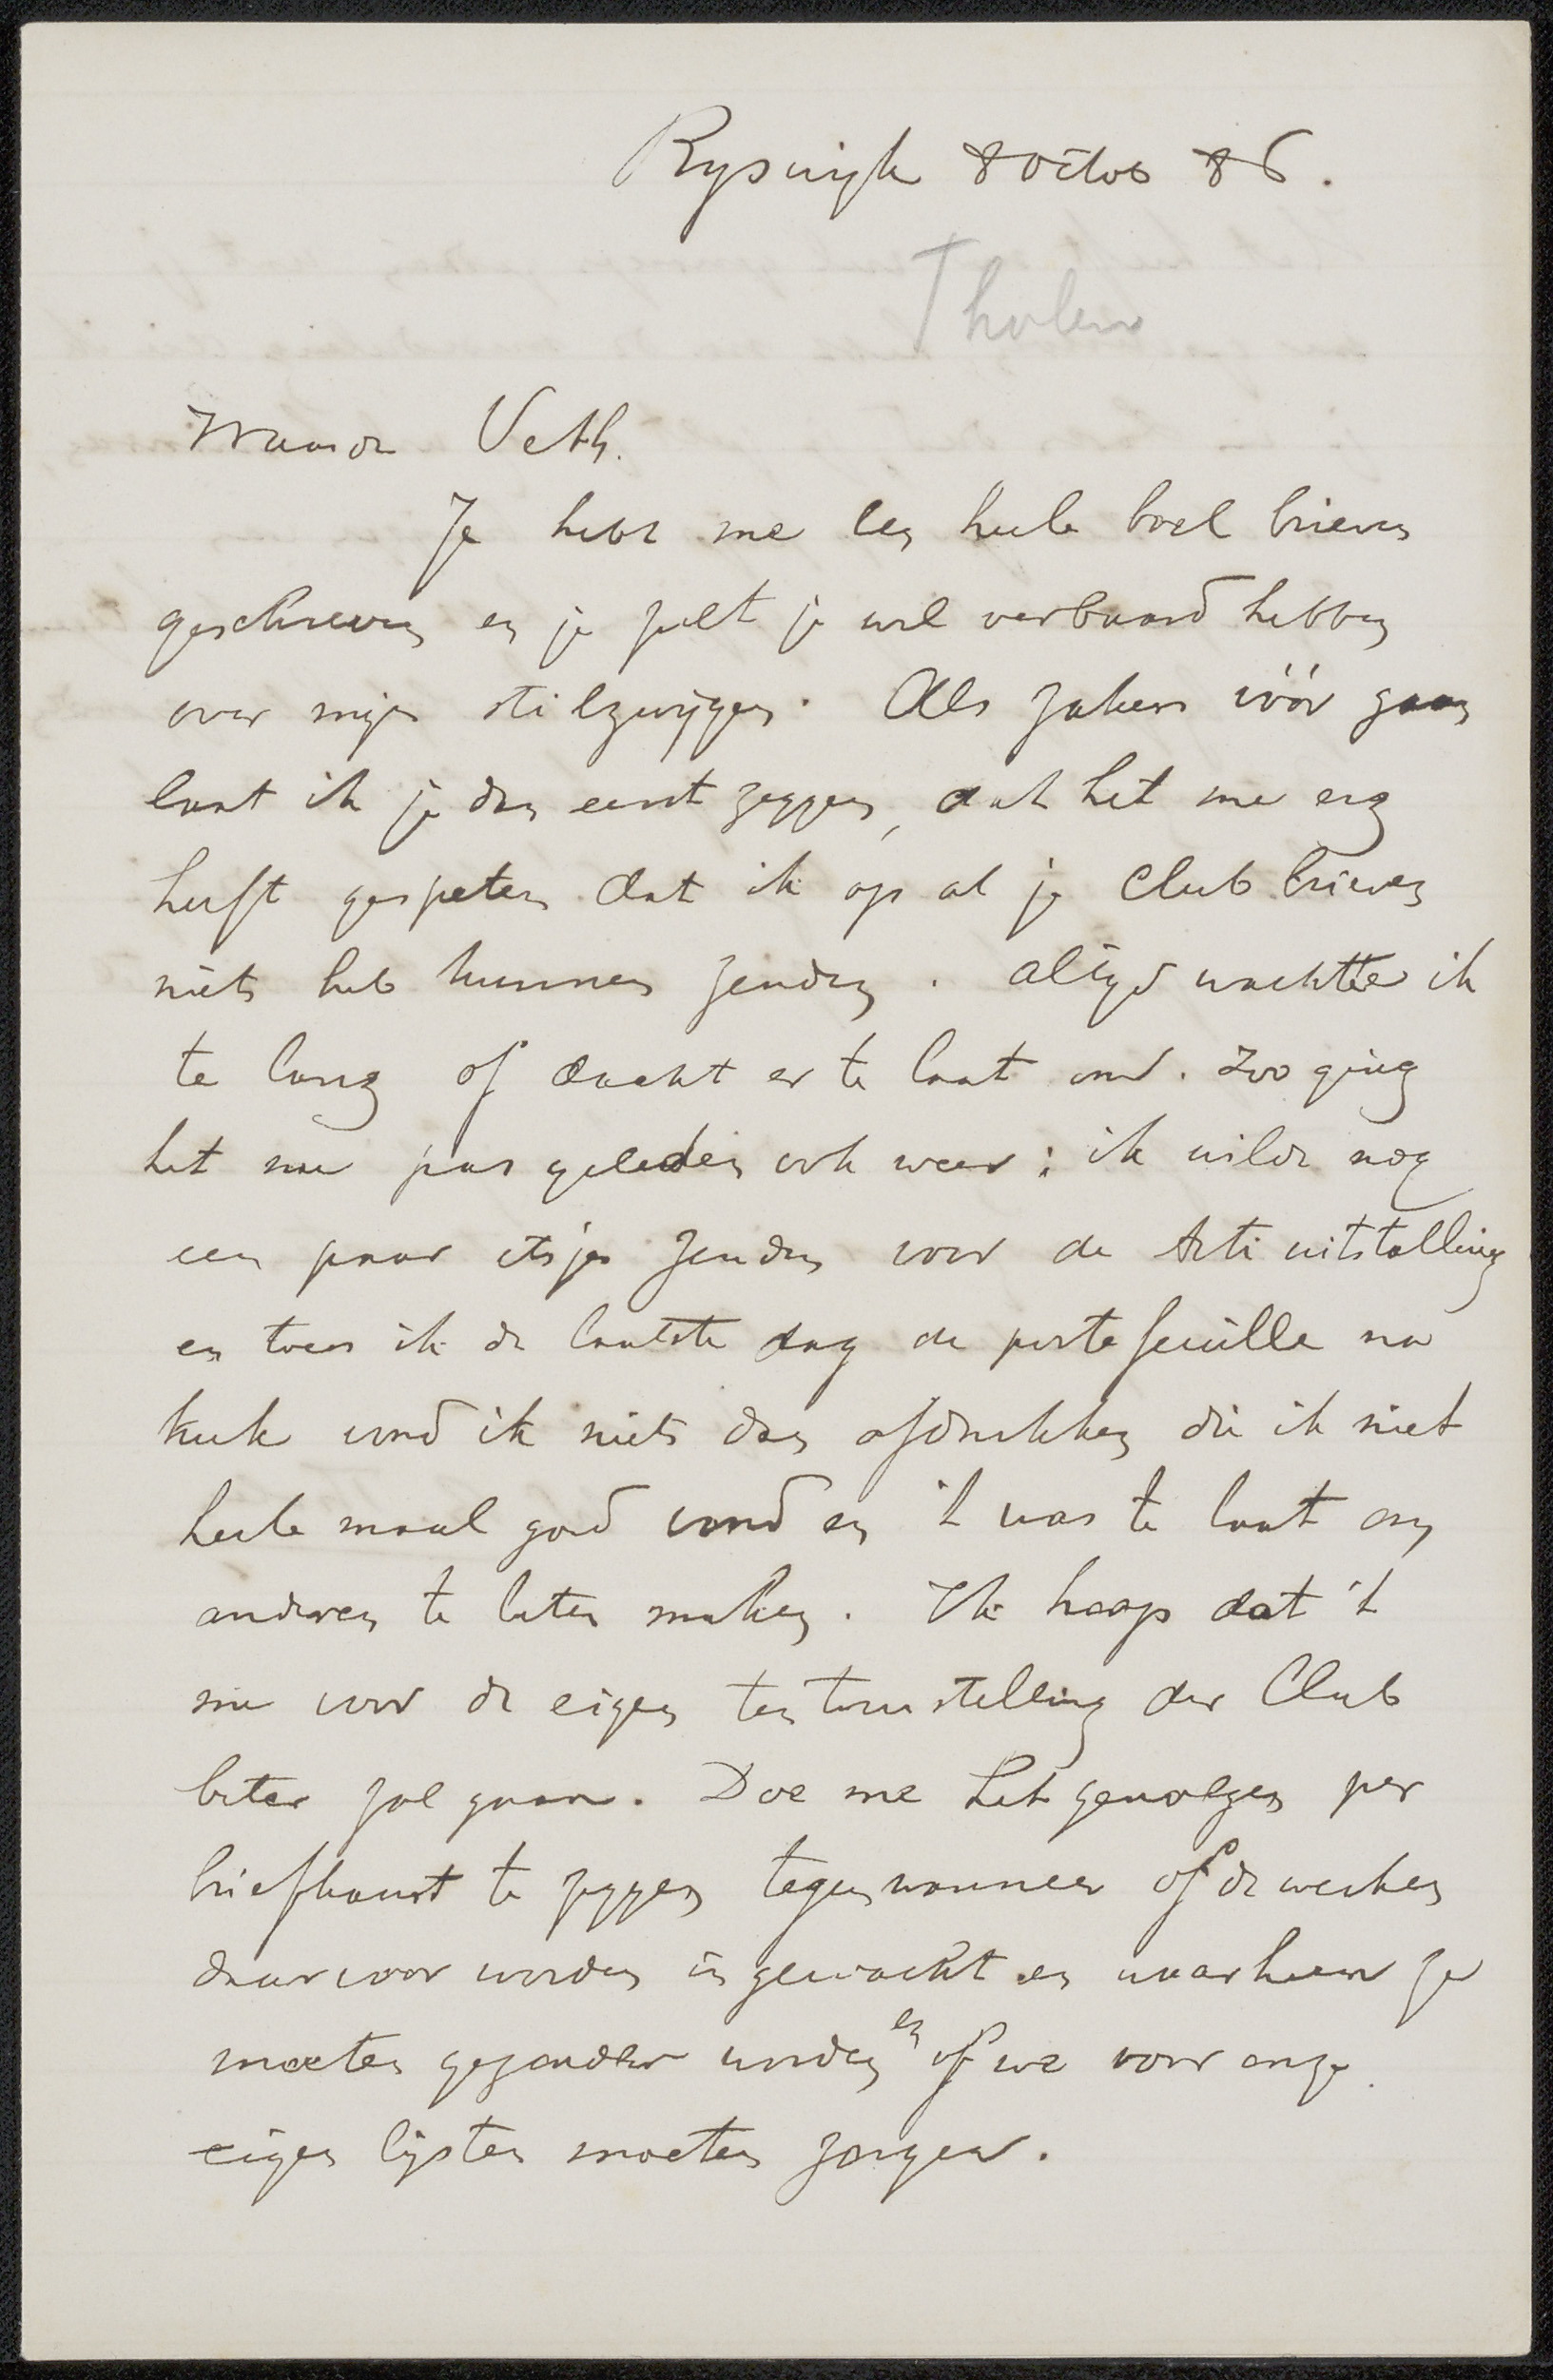 Ryswijk 8 Octob 86.
Tholen
Waarde Veth.
Je hebt me een heele boel brieven
geschreven en je zult je wel verbaasd hebben
over mijn stilzwijgen. Als zaken vóór gaan
laat ik je dan eerst zeggen, dat het me erg
heeft gespeten dat ik op al je Club brieven
niets heb kunnen zenden. altijd wachtte ik
te lang of dacht er te laat om. Zoo ging
het nu pas geleden ook weer: ik wilde nog
een paar etsjes zenden voor de Arti uitstalling
en toen ik de laatste dag de portefeuille na
keek vond ik niets dan afdrukken die ik niet
heele maal goed vond en 't was te laat om
anderen te laten maken. Ik hoop dat 't
nu voor de eigen tentoonstelling der Club
beter zal gaan. Doe me het genoegen per
briefkaart te zeggen tegen wanneer of de werken
daarvoor worden ingewacht en waarheen ze
moeten gezonden worden en of we voor onze
eigen lijsten moeten zorgen.